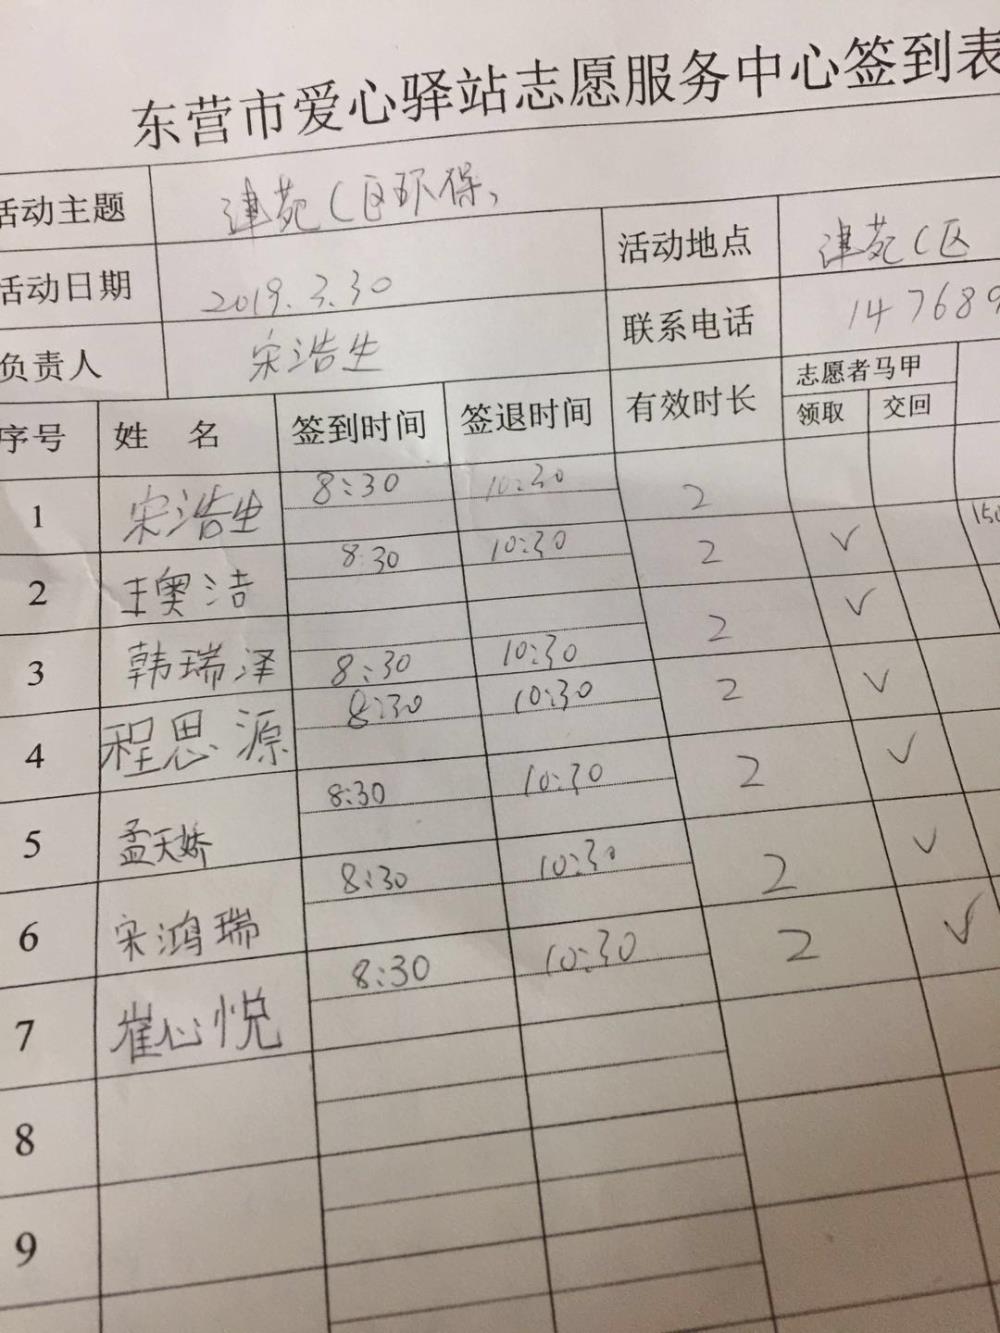 东营市爱心驿站志愿服务中心签到表
活动主题 津苑C区环保
活动日期 2019.3.30 活动地点 津苑C区
负责人 宋浩生 联系电话 147689
序号 姓 名 签到时间 签退时间 有效时长 志愿者马甲
领取 交回
1 宋浩生 8:30 10:30 2
2 王奥洁 8:30 10:30 2 √
3 韩瑞泽 8:30 10:30 2 √
4 程思源 8:30 10:30 2 √
5 孟天娇 8:30 10:30 2 √
6 宋鸿瑞 8:30 10:30 2 √
7 崔心悦 8:30 10:30 2 √
8
9